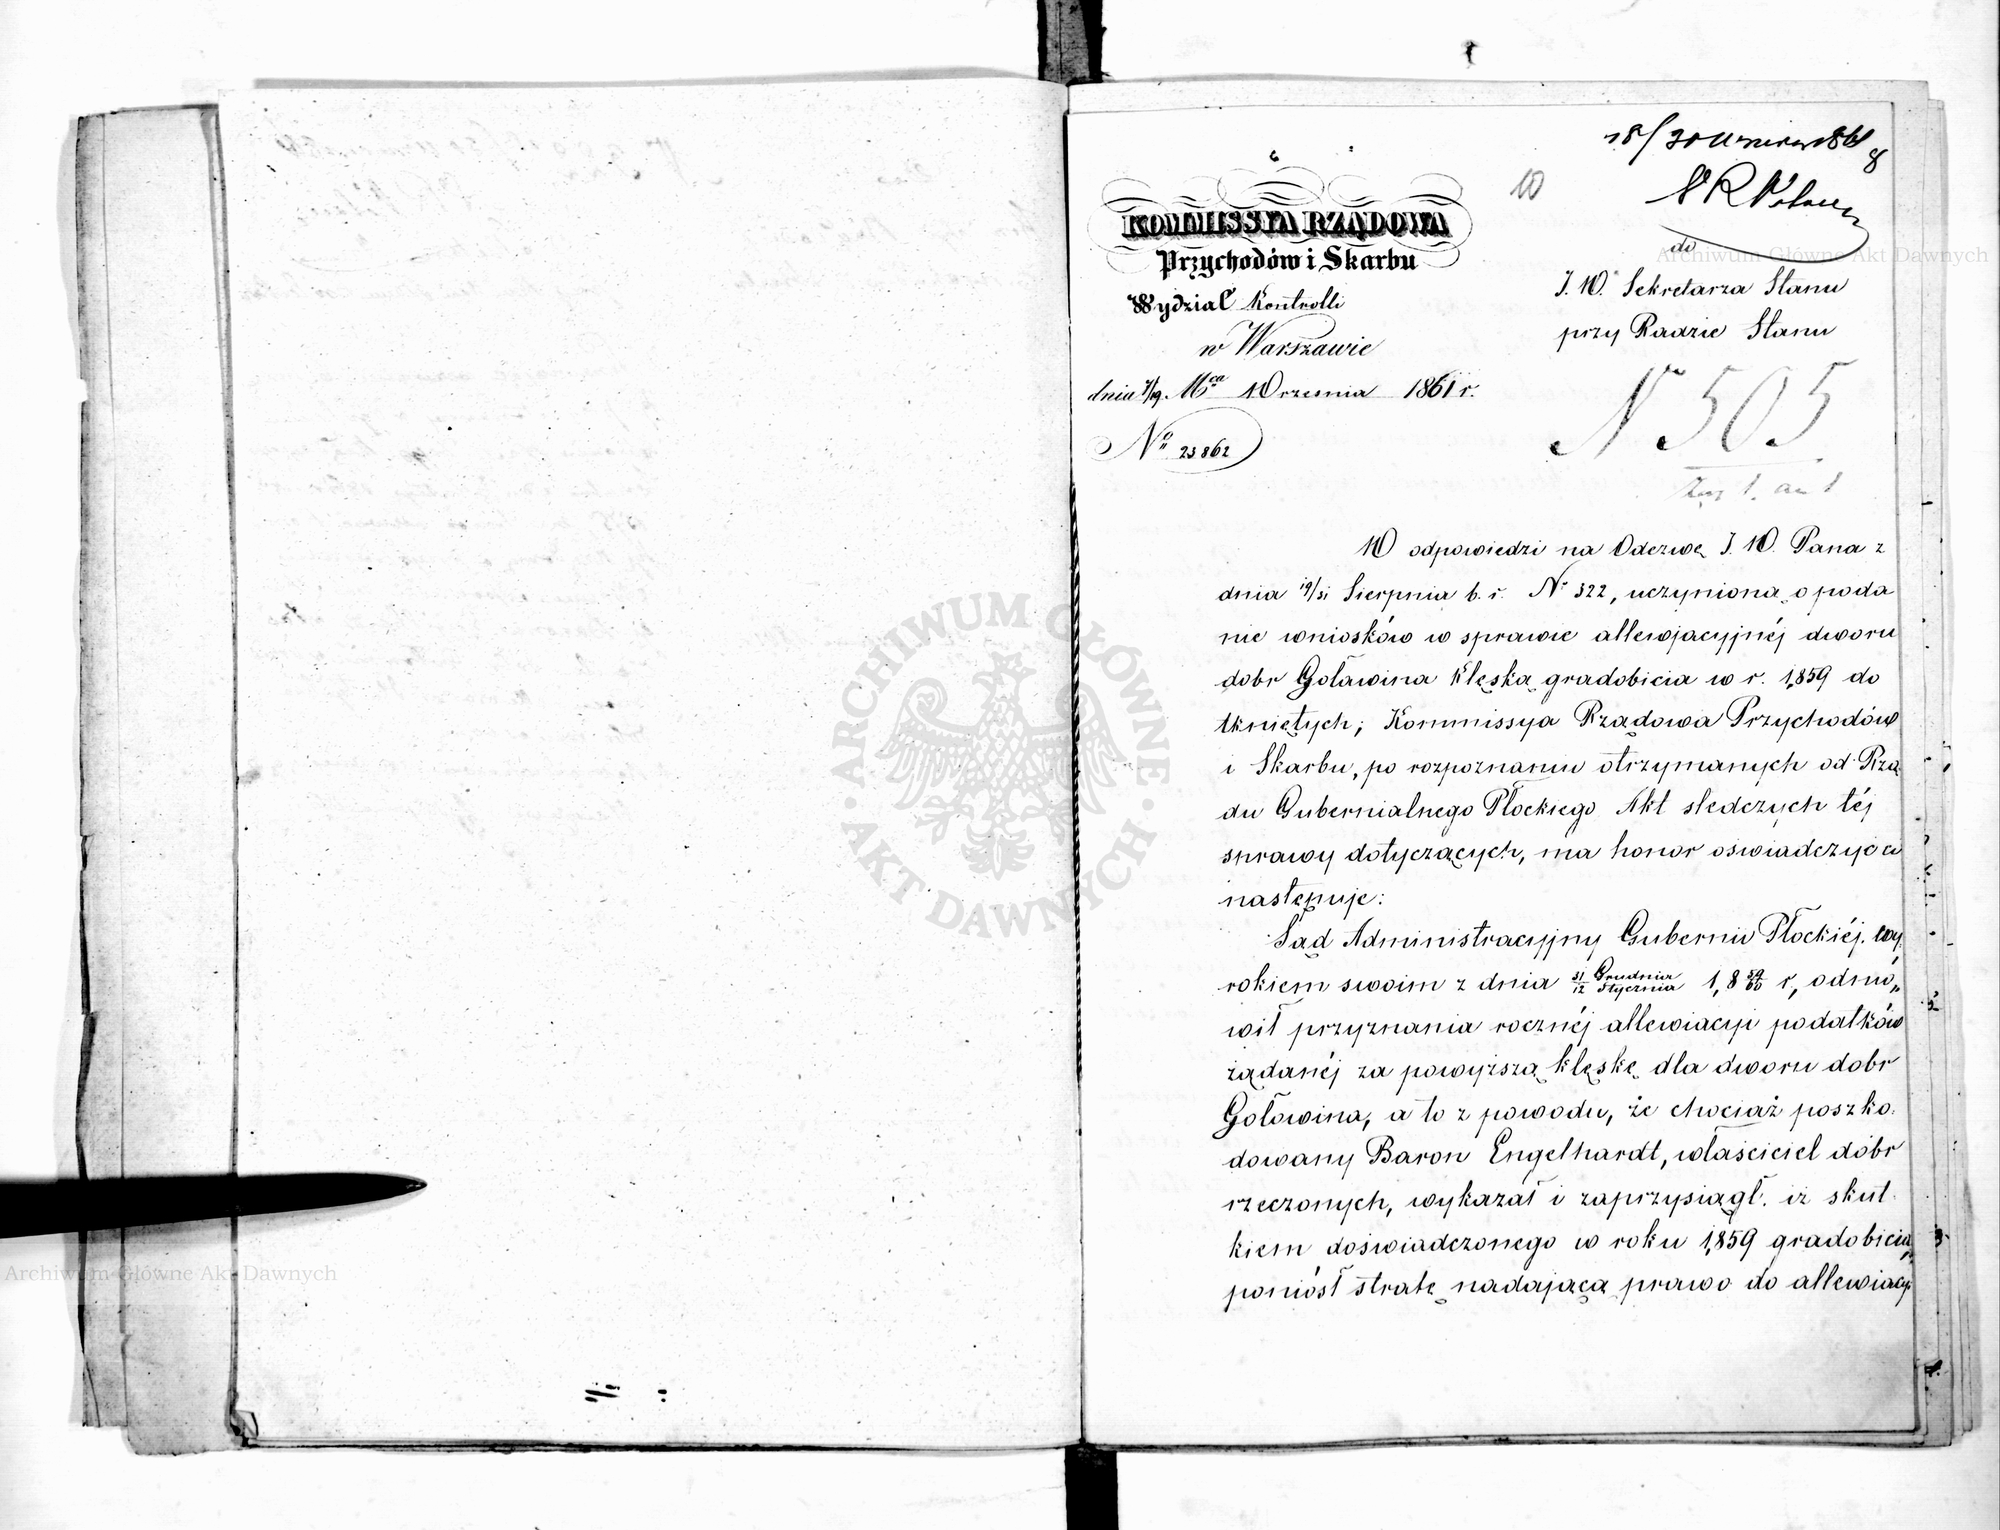 18/30 Września 1861
8
10
KOMMISSYA RZĄDOWA
Przychodów i Skarbu
Wydział Kontrolli
w Warszawie
dnia 7/19 Mca Września 1861 r.
No 23862
do
J. W. Sekretarza Stanu
przy Radzie Stanu
N 505
W odpowiedzi na Odezwę J. W. Pana z
dnia 19/31 Sierpnia b. r. No 322, uczynioną o poda
nie wniosków w sprawie allewjacyjnéj dworu
dobr Goławina klęską gradobicia w r. 1859 do
tkniętych; Kommissya Rządowa Przychodów
i Skarbu, po rozpoznaniu otrzymanych od Rzą
du Gubernialnego Płockiego Akt śledczych téj
sprawy dotyczących, ma honor oświadczyć co
następuje:
Sąd Administracyjny Gubernii Płockiéj, wy
rokiem swoim z dnia 31/12 Grudnia/Stycznia 1859/60 r, odmó„
wił przyznania rocznéj allewiacyi podatków
żądanéj za powyższą klęskę dla dworu dobr
Gołowina, a to z powodu, że chociaż poszko.
dowany Baron Engelhardt, właściciel dóbr
rzeczonych, wykazał i zaprzysiągł, iż skut.
kiem doświadczonego w roku 1859 gradobicia,
poniósł stratę nadającą prawo do allewiacyi
ARCHIWUM GŁÓWNE AKT DAWNYCH
Archiwum Główne Akt Dawnych
Archiwum Główne Akt Dawnych